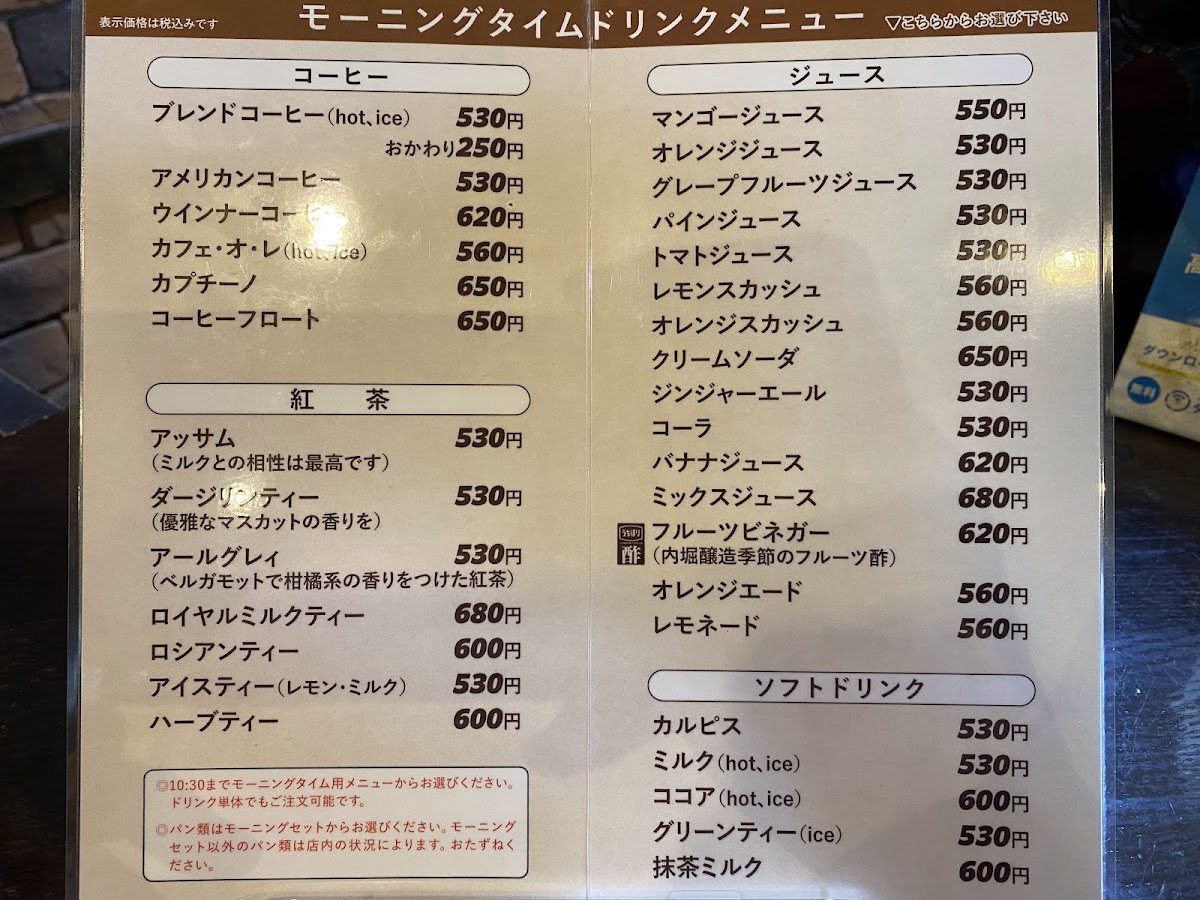 表示価格は税込みです
モーニングタイムドリンクメニュー
▽こちらからお選び下さい
コーヒー
ブレンドコーヒー(hot、ice) 530円
おかわり250円
アメリカンコーヒー 530円
ウインナーコーヒー 620円
カフェ・オ・レ(hot、ice) 560円
カプチーノ 650円
コーヒーフロート 650円
紅 茶
アッサム 530円
(ミルクとの相性は最高です)
ダージリンティー 530円
(優雅なマスカットの香りを)
アールグレィ 530円
(ベルガモットで柑橘系の香りをつけた紅茶)
ロイヤルミルクティー 680円
ロシアンティー 600円
アイスティー(レモン・ミルク) 530円
ハーブティー 600円
◎10:30までモーニングタイム用メニューからお選びください。
ドリンク単体でもご注文可能です。
◎パン類はモーニングセットからお選びください。モーニング
セット以外のパン類は店内の状況によります。おたずねく
ださい。
ジュース
マンゴージュース 550円
オレンジジュース 530円
グレープフルーツジュース 530円
パインジュース 530円
トマトジュース 530円
レモンスカッシュ 560円
オレンジスカッシュ 560円
クリームソーダ 650円
ジンジャーエール 530円
コーラ 530円
バナナジュース 620円
ミックスジュース 680円
うちぼり
酢
フルーツビネガー 620円
(内堀醸造季節のフルーツ酢)
オレンジエード 560円
レモネード 560円
ソフトドリンク
カルピス 530円
ミルク(hot、ice) 530円
ココア(hot、ice) 600円
グリーンティー(ice) 530円
抹茶ミルク 600円
ダウンロー
無料